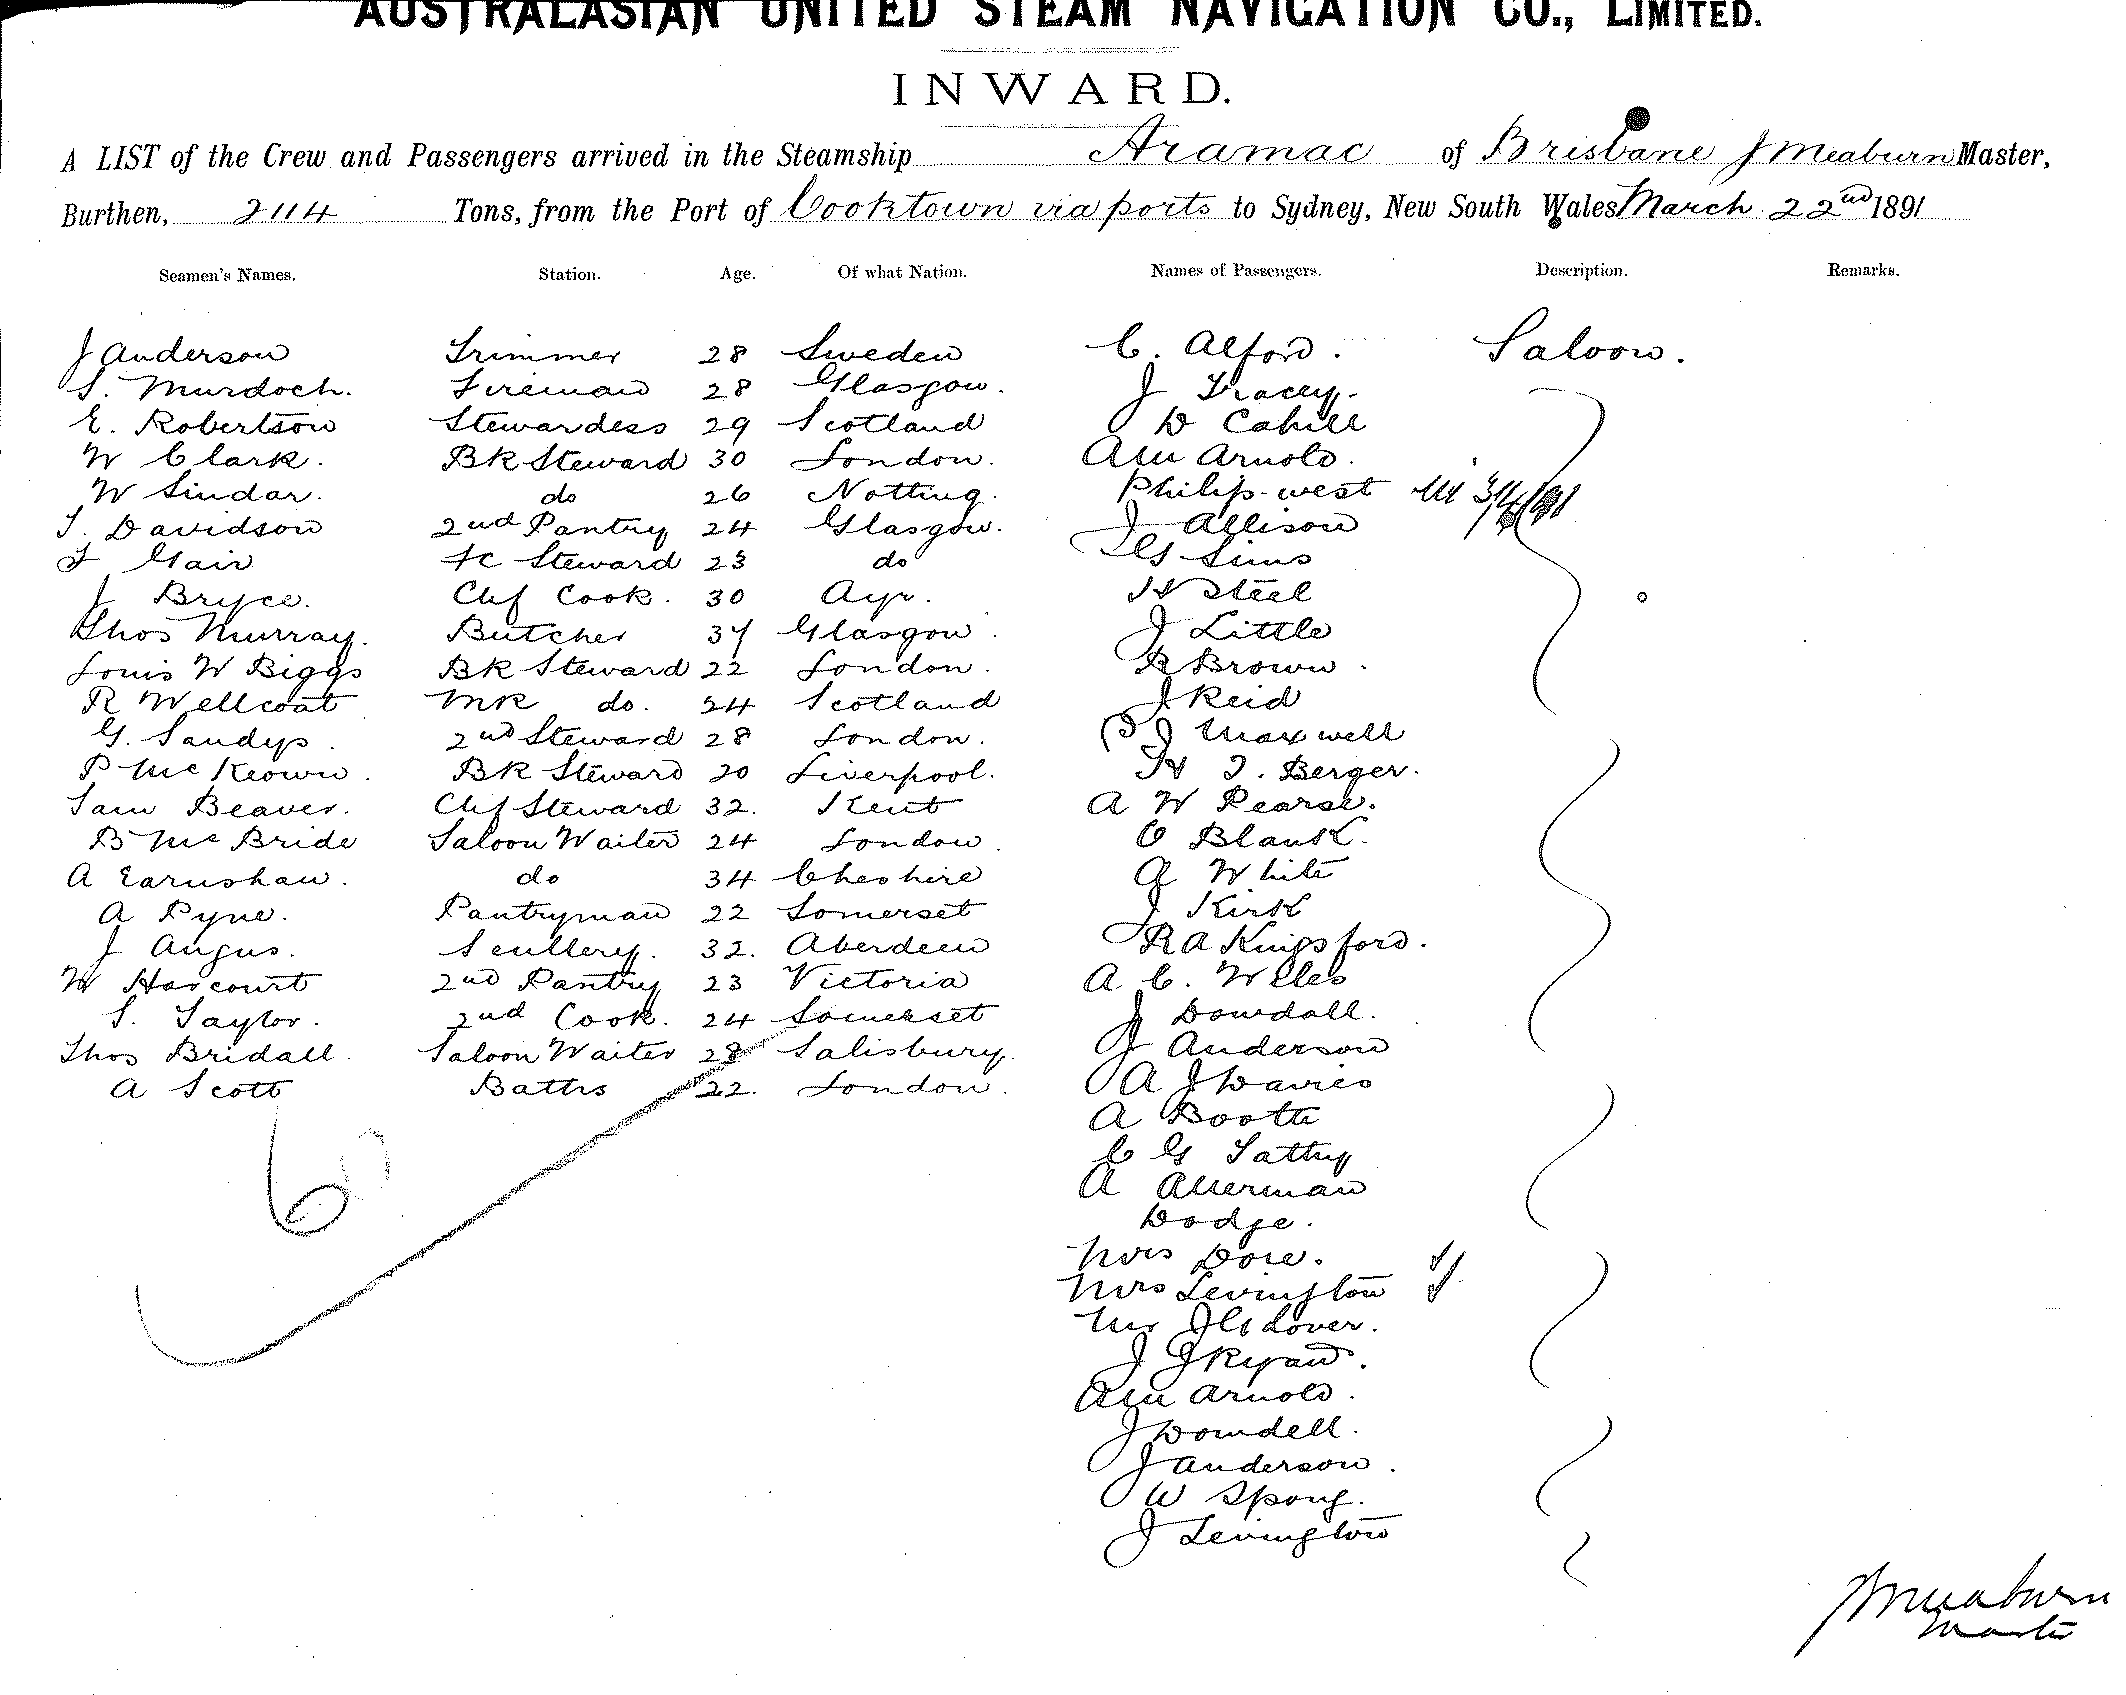 AUSTRALASIAN UNITED STEAM NAVIGATION CO., LIMITED.
INWARD.
A LIST of the Crew and Passengers arrived in the Steamship Aramac of Brisbane J Meaburn Master,
Burthen, 2114 Tons, from the Port of Cooktown via ports to Sydney, New South Wales March 22nd 1891
Seamen's Names. Station. Age. Of what Nation. Names of Passengers. Description. Remarks.
J Anderson Trimmer 28 Sweden C. Alford. Saloon.
S. Murdoch. Fireman 28 Glasgow. J Tracey.
E. Robertson Stewardess 29 Scotland D Cahill
W Clark. BK Steward 30 London. AM Arnold.
W Sindar. do 26 Notting. Philip West
T. Davidson 2nd Pantry 24 Glasgow. J Allison
F Gair Fc Steward 23 do G Sims
J Bryce. Chf Cook. 30 Ayr. H Steel
Thos Murray. Butcher 37 Glasgow. J Little
Louis W Biggs BK Steward 22 London. R Brown.
R Wellcoat MR do. 24 Scotland J Reid
G. Sandys. 2nd Steward 28 London. J Maxwell
P McKeown. BK Steward 20 Liverpool. H J. Berger.
Sam Beaver. Chf Steward 32. Kent A W Pearse.
B McBride Saloon Waiter 24 London. O Blank.
A Earnshaw. do 34 Cheshire A White
A Pyne. Pantryman 22 Somerset J Kirk
J Angus. Scullery. 32. Aberdeen R A Kingsford.
W Harcourt 2nd Pantry 23 Victoria A C. Willes
S. Taylor. 2nd Cook. 24 Somerset J Dowdall.
Thos Bridall. Saloon Waiter 28 Salisbury. J Anderson
A Scott Baths 22. London. A J Davies
A Boote
C G
A Akerman
Dodge.
Mrs Dore.
Mrs Levington
Mr J G Lover.
J J Ryan.
AM Arnold.
J Dowdell.
J Anderson.
W Spong.
J Levington
J Meaburn
Master